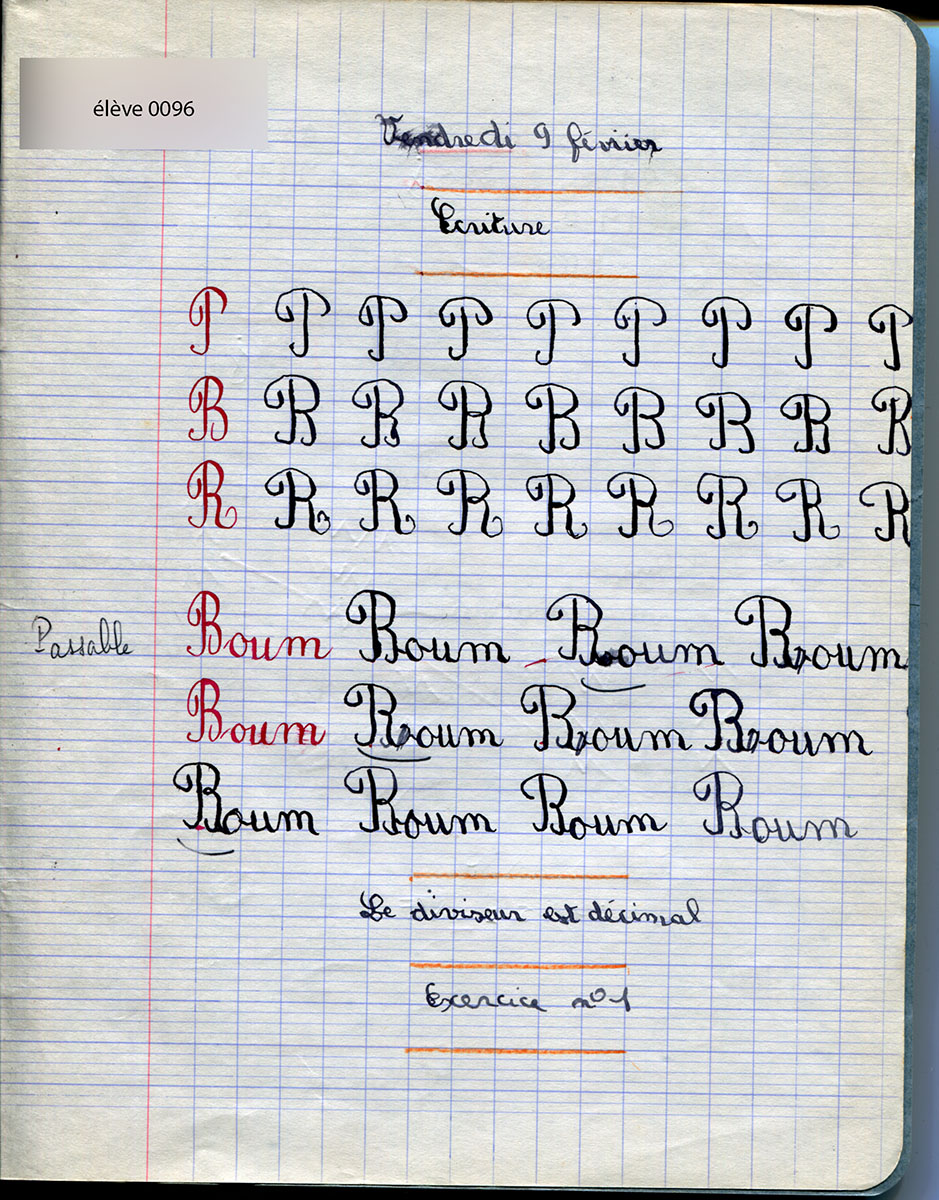 élève 0096
Vendredi 9 février
Ecriture
P P P P P P P P P
B B B B B B B B B
R R R R R R R R R
Passable
Boum Boum Boum Boum
Boum Boum Boum Boum
Boum Boum Boum Boum
Le diviseur est décimal
Exercice n° 1